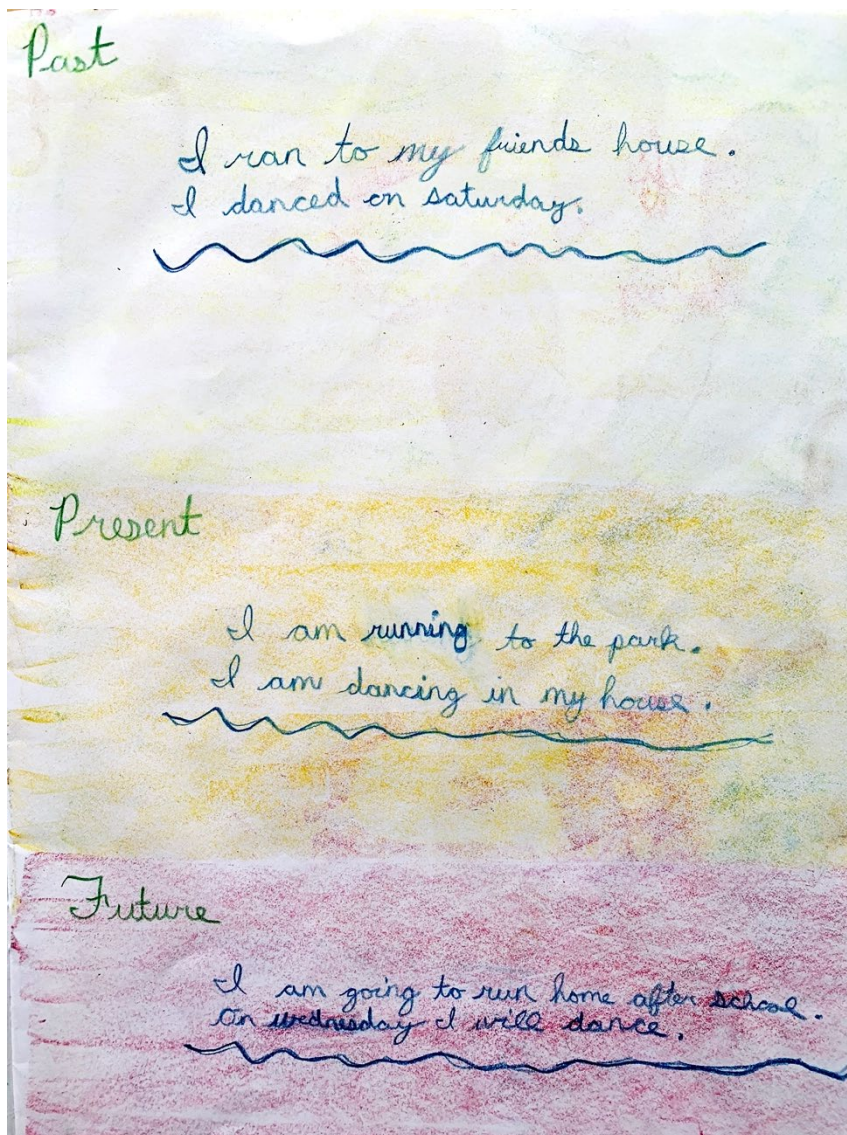 Past
I ran to my friends house.
I danced on saturday.
Present
I am running to the park.
I am dancing in my house.
Future
I am going to run home after school.
On wednesday I will dance.